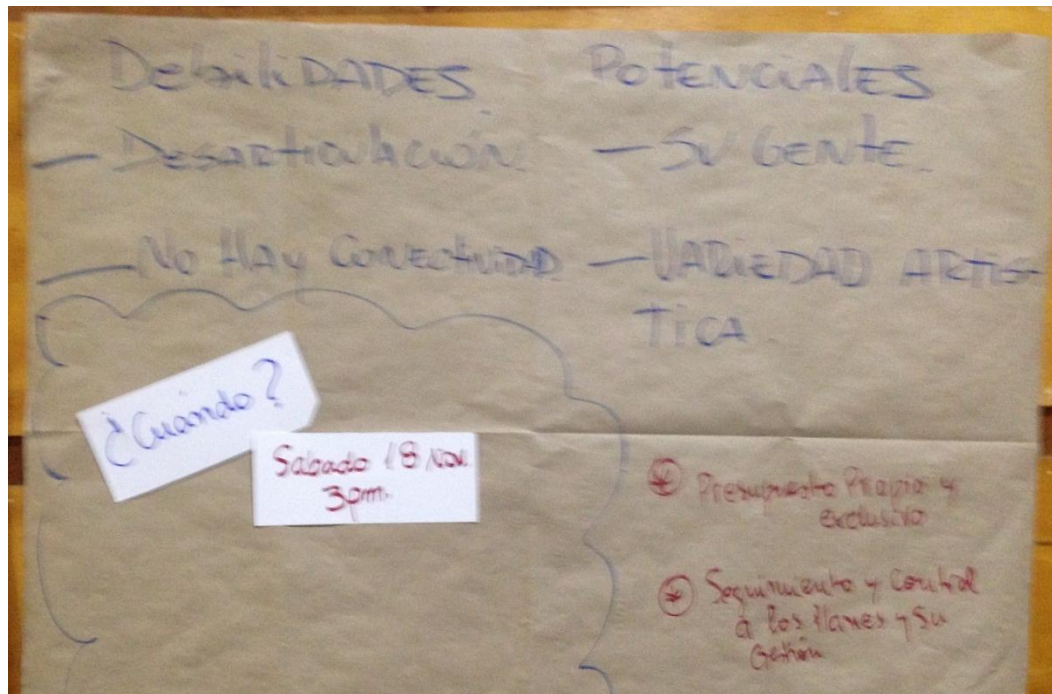 DebiliDADES.
— DESARTICULACIÓN.
— No HAy CONECTIVIDAD
POTENCIALES
— SU GENTE.
— VARIEDAD ARTIS-
TICA
¿Cuándo?
Sabado 18 Nov.
3pm.
Presupuesto Propio y
exclusivo
Seguimiento y Control
a los Planes y su
Gestión